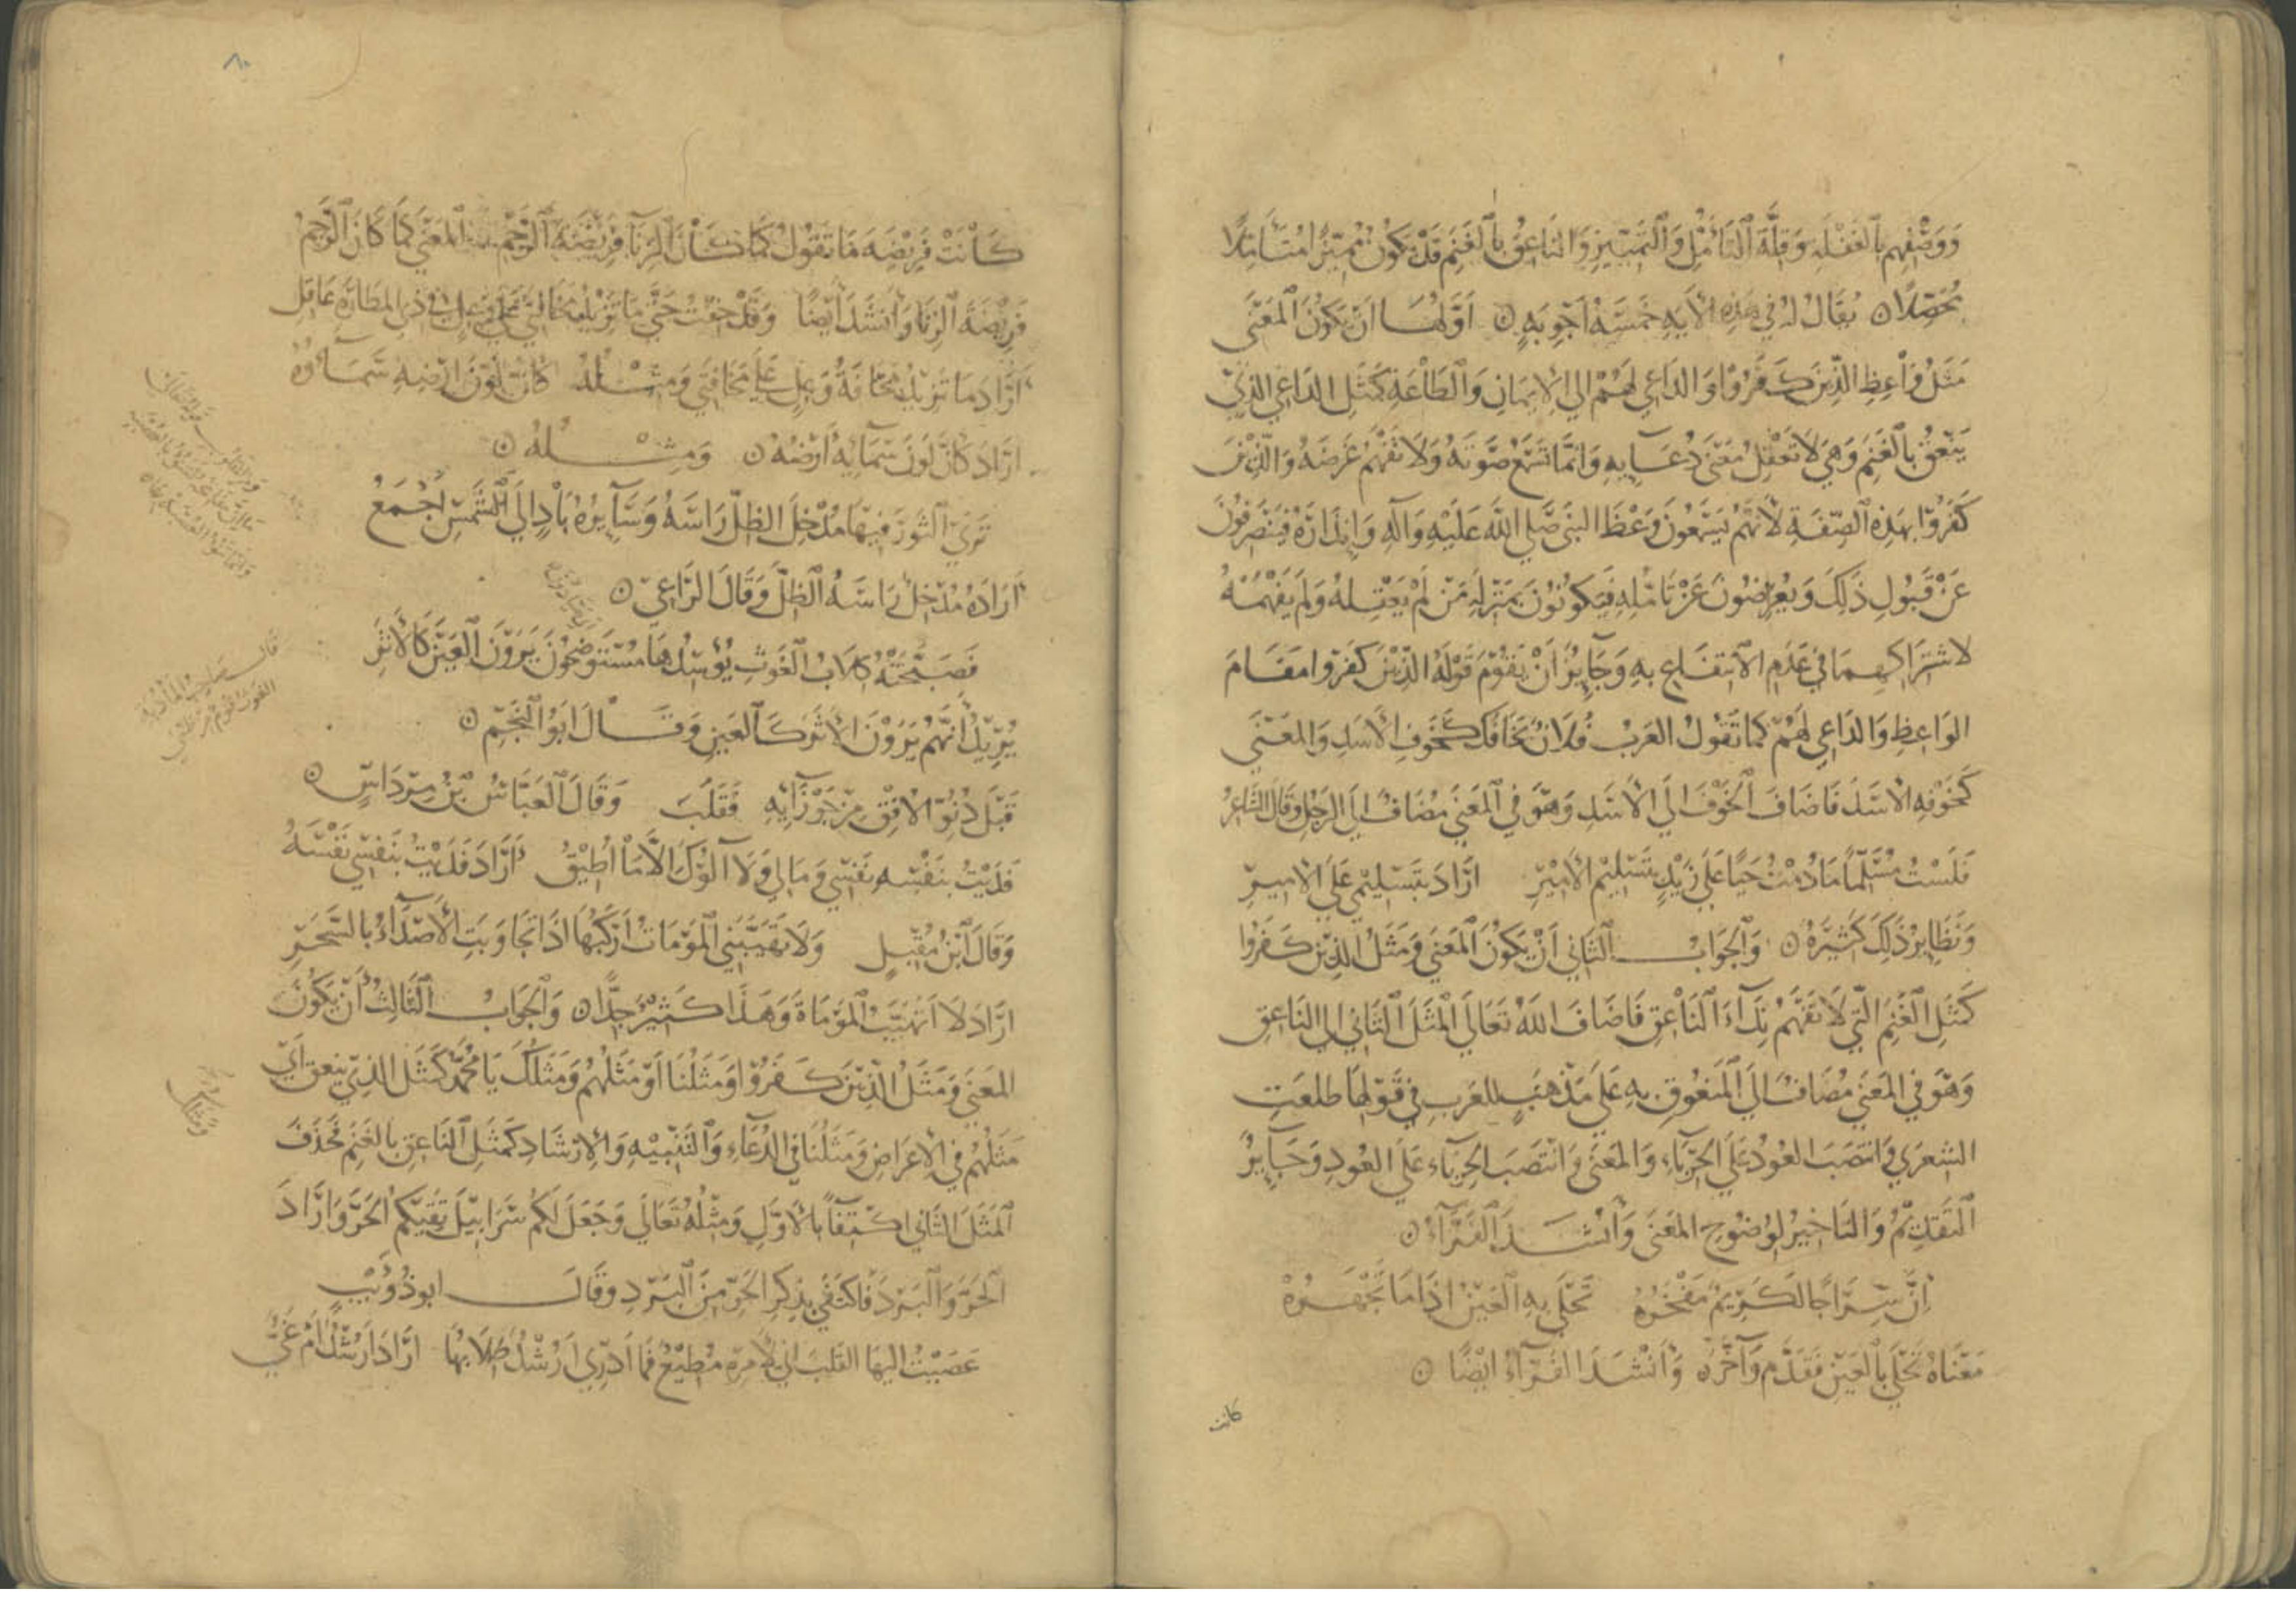 وَوَصْفِهِم بِالغَفْلَةِ وَقِلَّةِ التَّأَمُّلِ وَالتَّمْيِيزِ وَالنَّاعِقُ بِالغَنَمِ قَدْ يَكُونُ مُمَيِّزًا مُتَأَمِّلًا
مُحَصِّلًا ۝ يُقَالُ لَهُ فِي هَذِهِ الْآيَةِ خَمْسَةُ أَجْوِبَةٍ ۝ أَوَّلُهَا أَنْ يَكُونَ الْمَعْنَى
مَثَلُ وَاعِظِ الَّذِينَ كَفَرُوا وَالدَّاعِي لَهُمْ إِلَى الْإِيمَانِ وَالطَّاعَةِ كَمَثَلِ الدَّاعِي الَّذِي
يَنْعِقُ بِالْغَنَمِ وَهِيَ لَا تَعْقِلُ مَعْنَى دُعَائِهِ وَإِنَّمَا تَسْمَعُ صَوْتَهُ وَلَا تَفْهَمُ غَرَضَهُ وَالَّذِينَ
كَفَرُوا بِهَذِهِ الصِّفَةِ لِأَنَّهُمْ يَسْمَعُونَ وَعْظَ النَّبِيِّ صَلَّى اللَّهُ عَلَيْهِ وَآلِهِ وَإِنْذَارَهُ فَيَنْصَرِفُونَ
عَنْ قَبُولِ ذَلِكَ وَيُعْرِضُونَ عَنْ تَأَمُّلِهِ فَيَكُونُونَ بِمَنْزِلَةِ مَنْ لَمْ يَعْقِلْهُ وَلَمْ يَفْهَمْهُ
لاشْتِرَاكِهِمَا فِي عَدَمِ الِانْتِفَاعِ بِهِ وَجَايِزٌ أَنْ يَقُومَ قَوْلُهُ الَّذِينَ كَفَرُوا مَقَامَ
الوَاعِظِ وَالدَّاعِي لَهُمْ كَمَا تَقُولُ العَرَبُ فُلَانٌ يَخَافُكَ كَخَوْفِ الْأَسَدِ وَالمَعْنَى
كَخَوْفِهِ الْأَسَدَ فَأَضَافَ الْخَوْفَ إِلَى الْأَسَدِ وَهُوَ فِي الْمَعْنَى مُضَافٌ إِلَى الرَّجُلِ وَقَالَ الشَّاعِرُ
فَلَسْتُ مُسَلِّمًا مَا دُمْتُ حَيًّا عَلَى زَيْدٍ بِتَسْلِيمِ الْأَمِيرِ أَرَادَ بِتَسْلِيمِي عَلَى الْأَمِيرِ
وَنَظَايِرُ ذَلِكَ كَثِيرَةٌ ۝ وَالْجَوَابُ الثَّانِي أَنْ يَكُونَ الْمَعْنَى وَمَثَلُ الَّذِينَ كَفَرُوا
كَمَثَلِ الْغَنَمِ الَّتِي لَا تَفْهَمُ نِدَاءَ النَّاعِقِ فَأَضَافَ اللَّهُ تَعَالَى الْمَثَلَ الثَّانِي إِلَى النَّاعِقِ
وَهُوَ فِي الْمَعْنَى مُضَافٌ إِلَى الْمَنْعُوقِ بِهِ عَلَى مَذْهَبِ العَرَبِ فِي قَوْلِهَا طَلَعَتِ
الشِّعْرَى وَانْتَصَبَ الْعُودُ عَلَى الْحِرْبَاءِ وَالْمَعْنَى وَانْتَصَبَ الْحِرْبَاءُ عَلَى الْعُودِ وَجَايِزٌ
التَّقْدِيمُ وَالتَّاخِيرُ لِوُضُوحِ الْمَعْنَى وَأَنْشَدَ الْفَرَّاءُ ۝
إِنَّ سِرَاجًا لَكَرِيمٌ مَفْخَرُهْ تَحْلَى بِهِ الْعَيْنُ إِذَا مَا تَجْهَرُهْ
مَعْنَاهُ تَحْلَى بِالْعَيْنِ فَقَدَّمَ وَأَخَّرَهُ وَأَنْشَدَ الْفَرَّاءُ أَيْضًا ۝
كانت
٨٠
كَانَتْ فَرِيضَةَ مَا تَقُولُ كَمَا كَانَ الزِّنَا فَرِيضَةَ الرَّجْمِ الْمَعْنَى كَمَا كَانَ الرَّجْمُ
فَرِيضَةَ الزِّنَا وَأَنْشَدَ أَيْضًا وَقَدْ خِفْتُ حَتَّى مَا تَزِيدُ مَخَافَتِي عَلَى وَعِلٍ فِي ذِي الْمَطَارَةِ عَاقِلِ
أَرَادَ مَا تَزِيدُ مَخَافَةُ وَعِلٍ عَلَى مَخَافَتِي وَمِثْلُهُ كَأَنَّ لَوْنَ أَرْضِهِ سَمَاؤُهُ
أَرَادَ كَأَنَّ لَوْنَ سَمَائِهِ أَرْضُهُ ۝ وَمِثْلُهُ ۝
تَرَى الثَّوْرَ فِيهَا مُدْخِلَ الظِّلِّ رَاسَهُ وَسَايِرُهُ بَادٍ إِلَى الشَّمْسِ أَجْمَعُ
أَرَادَ مُدْخِلَ رَاسَهُ الظِّلَّ وَقَالَ الرَّاعِي ۝
فَصَبَّحَتْهُ كِلَابُ الْغَوْثِ يُوسِدُهَا مُسْتَوْضِحُونَ يَرَوْنَ الْعَيْنَ كَالْأَثَرِ
يُرِيدُ أَنَّهُمْ يَرَوْنَ الْأَثَرَ كَالْعَيْنِ وَقَالَ أَبُو النَّجْمِ ۝
قَبْلَ دُنُوِّ الْأُفْقِ مِنْ جَوْزَائِهِ فَقَلَبَ وَقَالَ الْعَبَّاسُ بْنُ مِرْدَاسٍ ۝
فَدَيْتُ بِنَفْسِهِ نَفْسِي وَمَالِي وَلَا آلُوكَ إِلَّا مَا أُطِيقُ أَرَادَ فَدَيْتُ بِنَفْسِي نَفْسَهُ
وَقَالَ ابْنُ مُقْبِلٍ وَلَا تَهَيَّبُنِي الْمَوْمَاتُ أَرْكَبُهَا إِذَا تَجَاوَبَتِ الْأَصْدَاءُ بِالسَّحَرِ
أَرَادَ لَا أَتَهَيَّبُ الْمَوْمَاةَ وَهَذَا كَثِيرٌ جِدًّا ۝ وَالْجَوَابُ الثَّالِثُ أَنْ يَكُونَ
الْمَعْنَى وَمَثَلُ الَّذِينَ كَفَرُوا وَمَثَلُنَا أَوْ مَثَلُهُمْ وَمَثَلُكَ يَا مُحَمَّدُ كَمَثَلِ الَّذِي يَنْعِقُ أَيْ
مَثَلُهُمْ فِي الْإِعْرَاضِ وَمَثَلُنَا فِي الدُّعَاءِ وَالتَّنْبِيهِ وَالْإِرْشَادِ كَمَثَلِ النَّاعِقِ بِالْغَنَمِ فَحَذَفَ
الْمَثَلَ الثَّانِي اكْتِفَاءً بِالْأَوَّلِ وَمِثْلُهُ تَعَالَى وَجَعَلَ لَكُمْ سَرَابِيلَ تَقِيكُمُ الْحَرَّ وَأَرَادَ
الْحَرَّ وَالْبَرْدَ فَاكْتَفَى بِذِكْرِ الْحَرِّ مِنَ الْبَرْدِ وَقَالَ أَبُو ذُؤَيْبٍ
عَصَيْتُ إِلَيْهَا الْقَلْبَ إِنِّي لِأَمْرِهِ مُطِيعٌ فَمَا أَدْرِي أَرُشْدٌ طِلَابُهَا أَرَادَ أَرُشْدٌ أَمْ غَيٌّ